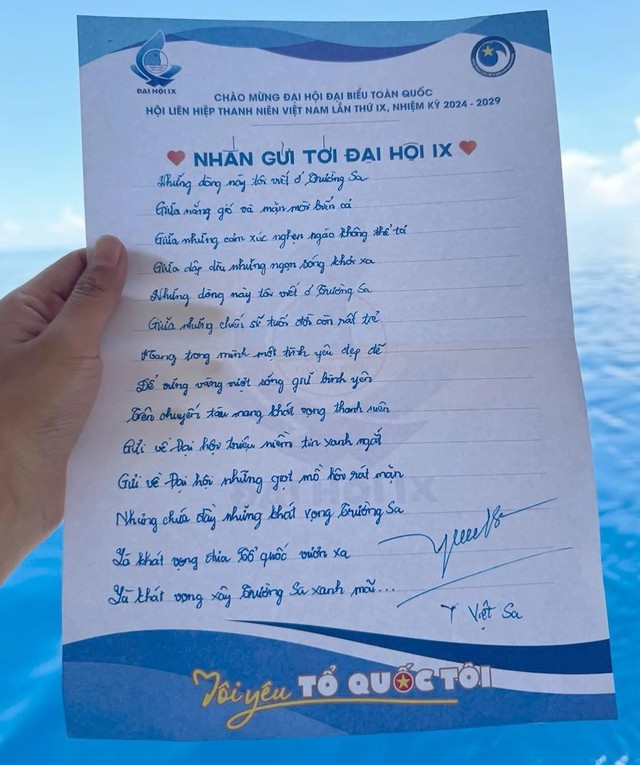 ĐẠI HỘI IX
CHÀO MỪNG ĐẠI HỘI ĐẠI BIỂU TOÀN QUỐC
HỘI LIÊN HIỆP THANH NIÊN VIỆT NAM LẦN THỨ IX, NHIỆM KỲ 2024 - 2029
NHẮN GỬI TỚI ĐẠI HỘI IX
Những dòng này tôi viết ở Trường Sa
Giữa nắng gió và mặn mòi biển cả
Giữa những cảm xúc nghẹn ngào không thể tả
Giữa dập dìu những ngọn sóng khơi xa
Những dòng này tôi viết ở Trường Sa
Giữa những chiến sĩ tuổi đời còn rất trẻ
Mang trong mình một tình yêu đẹp đẽ
Để vững vàng vượt sóng giữ bình yên
Trên chuyến tàu mang khát vọng thanh niên
Gửi về Đại hội triệu niềm tin xanh ngát
Gửi về Đại hội những giọt mồ hôi rất mặn
Nhưng chứa đầy những khát vọng Trường Sa
Là khát vọng đưa Tổ quốc vươn xa
Là khát vọng xây Trường Sa xanh mãi...
T Việt Sa
ĐẠI HỘI IX
Tôi yêu TỔ QUỐC TÔI